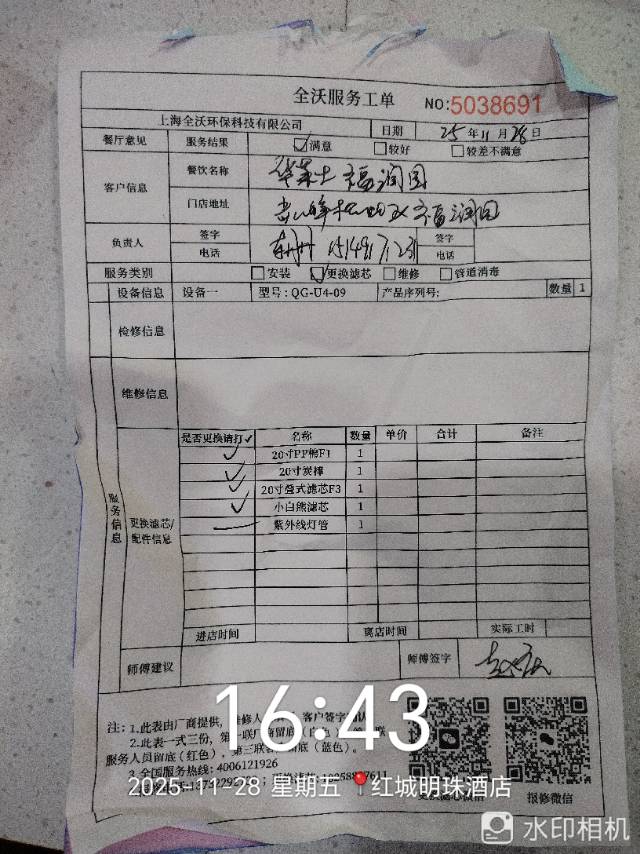 全沃服务工单 NO:5038691
上海全沃环保科技有限公司 日期 25年11月28日
餐厅意见 服务结果 满意 较好 较差不满意
客户信息 餐饮名称 华莱士福润园
门店地址 福润园
负责人 签字 签字
电话 电话
服务类别 安装 更换滤芯 维修 管道消毒
设备信息 设备一 型号:QG-U4-09 产品序列号: 数量 1
检修信息
维修信息
服务信息
更换滤芯/配件信息
是否更换请打✓ 名称 数量 单价 合计 备注
✓ 20寸PP棉F1 1
✓ 20寸炭棒 1
✓ 20寸叠式滤芯F3 1
✓ 小白熊滤芯 1
— 紫外线灯管 1
进店时间 离店时间 实际工时
师傅建议 师傅签字
16:43
注:1.此表由厂商提供,
2.此表一式三份,
服务人员留底(红色),第三联 留底(蓝色)。
3.全国服务热线:4006121926
2025-11-28 星期五 红城明珠酒店
报修微信
水印相机